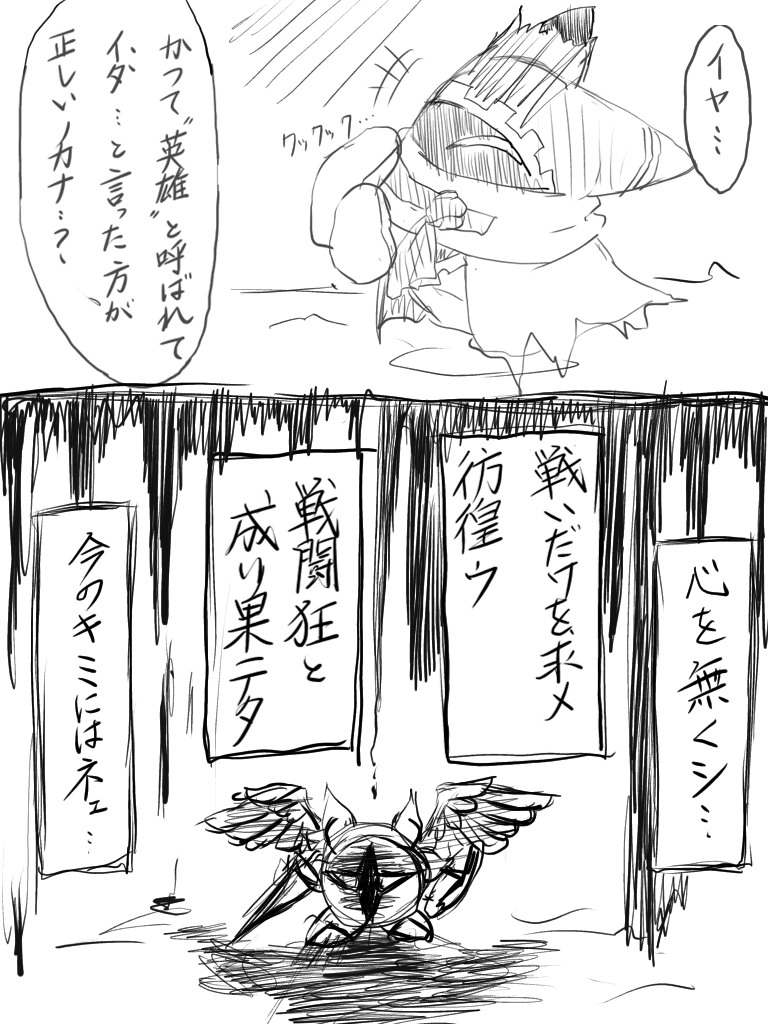 イヤ…
クックック…
かつて"英雄"と呼ばれて
イダ…と言った方が
正しいノカナ…？
心を無くシ…
戦いだけを求メ
彷徨ウ
戦闘狂と
成り果テタ
今のキミにはネェ…